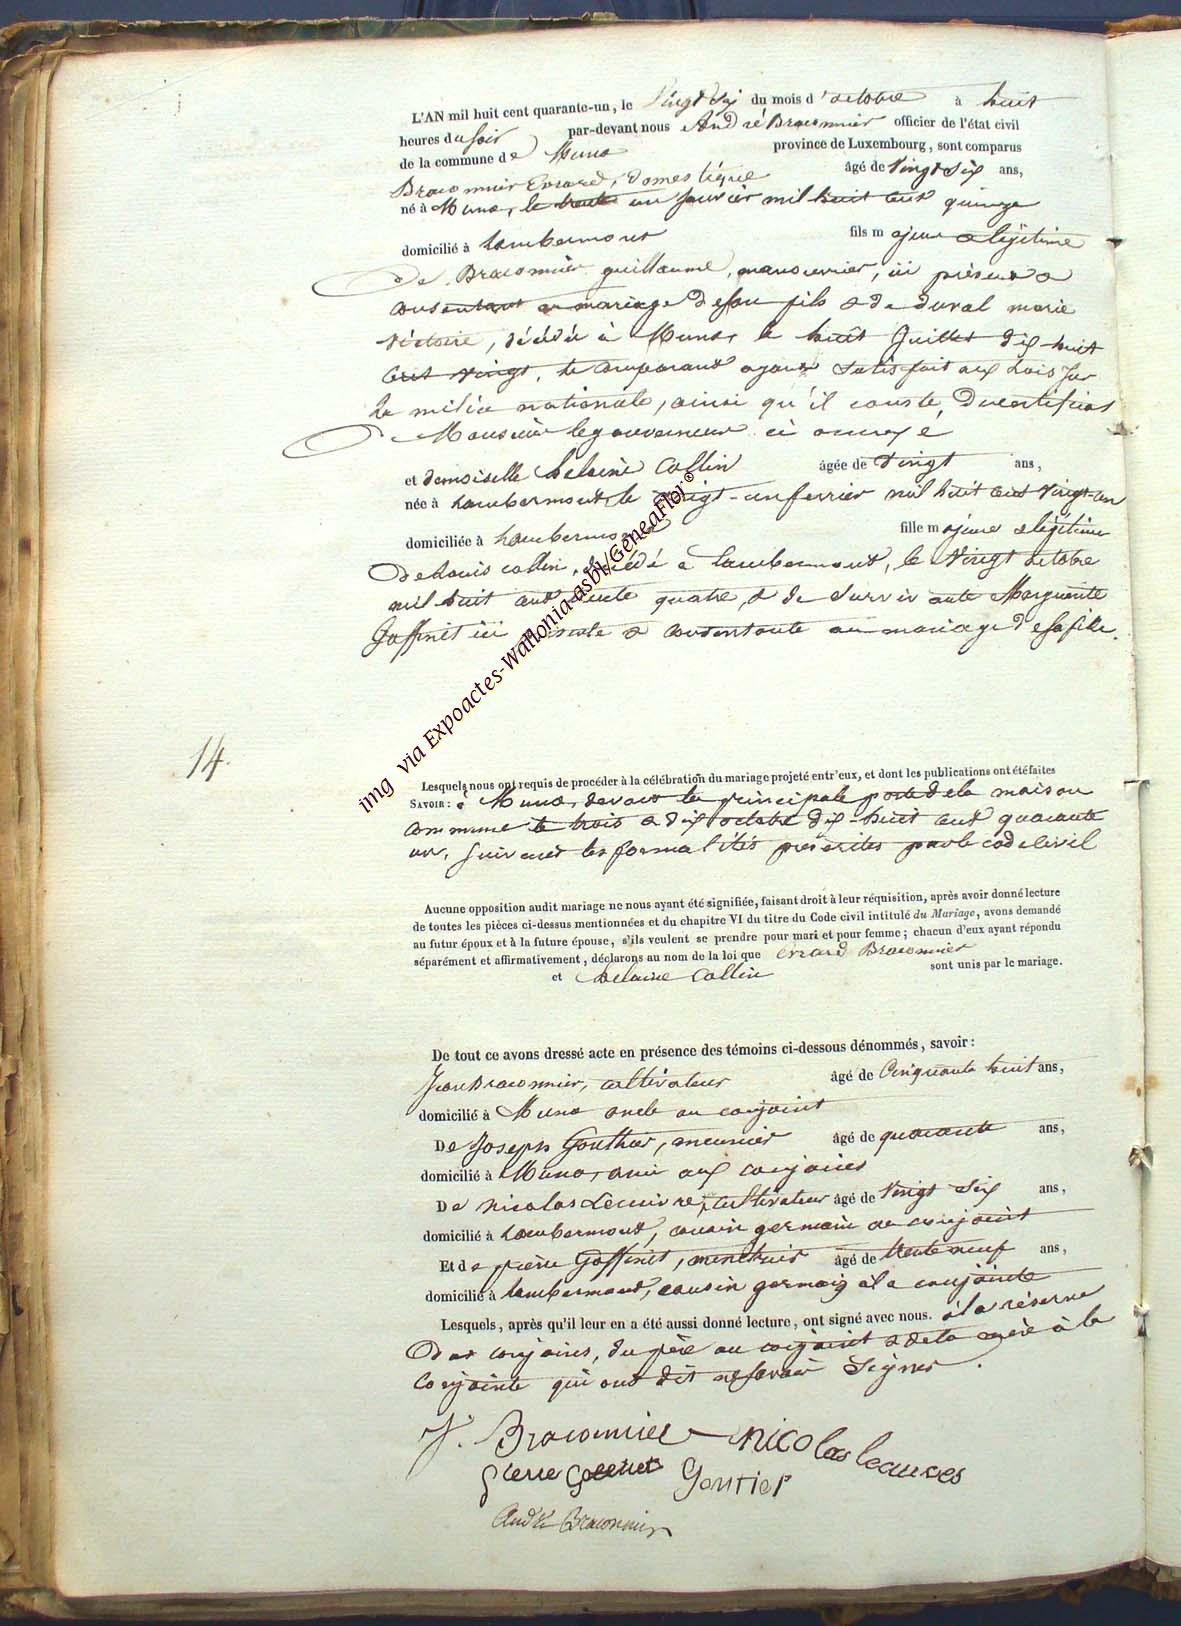 L'AN mil huit cent quarante-un, le Vingt Six du mois d'octobre à huit
heures du soir par-devant nous André Braconnier officier de l'état civil
de la commune de Muno province de Luxembourg, sont comparus
Braconnier Evrard, domestique âgé de Vingt Six ans,
né à Muno, le trente un janvier mil huit cent quinze
domicilié à Lambermont fils majeur & légitime
De Braconnier guillaume, manouvrier, ici présent &
consentant au mariage de son fils & de duval marie
victoire, décédée à Muno, le huit Juillet dix-huit
cent vingt, le comparant ayant satisfait aux Lois sur
la milice nationale, ainsi qu'il conste, du certificat
De Monsieur le gouverneur ci annexé
et demoiselle helaine Collin âgée de Vingt ans,
née à Lambermont, le vingt-un fevrier mil huit cent Vingt-un
domiciliée à Lambermont fille majeure & légitime
De Louis collin, décédé à Lambermont, le Vingt octobre
mil huit cent trente quatre, & de Survivante Marguerite
Goffinet ici présente & consentante au mariage de sa fille.
14.
Lesquels nous ont requis de procéder à la célébration du mariage projeté entr'eux, et dont les publications ont été faites
SAVOIR : à Muno, devant la principale porte de la maison
commune le trois & dix octobre dix-huit cent quarante
un, suivant les formalités prescrites par le code civil
Aucune opposition audit mariage ne nous ayant été signifiée, faisant droit à leur réquisition, après avoir donné lecture
de toutes les pièces ci-dessus mentionnées et du chapitre VI du titre du Code civil intitulé du Mariage, avons demandé
au futur époux et à la future épouse, s'ils veulent se prendre pour mari et pour femme ; chacun d'eux ayant répondu
séparément et affirmativement, déclarons au nom de la loi que Evrard Braconnier
et helaine Collin sont unis par le mariage.
De tout ce avons dressé acte en présence des témoins ci-dessous dénommés, savoir :
Jean Braconnier, cultivateur âgé de Cinquante huit ans,
domicilié à Muno oncle au conjoint
De Joseph Gouthier, meunier âgé de quarante ans,
domicilié à Muno, ami aux conjoints
De nicolas Lecuivre, cultivateur âgé de Vingt Six ans,
domicilié à Lambermont, cousin germain au conjoint
Et de pierre Goffinet, menuisier âgé de trente neuf ans,
domicilié à Lambermont, cousin germain à la conjointe
Lesquels, après qu'il leur en a été aussi donné lecture, ont signé avec nous. à la réserve
Des conjoints, du père au conjoint & de la mère à la
Conjointe qui ont dit ne savoir Signer.
J. Braconnier nicolas lecuivre
Pierre Goffinet Goutier
André Braconnier
img via Expoactes-Wallonia-asbl/GeneaFloj ©